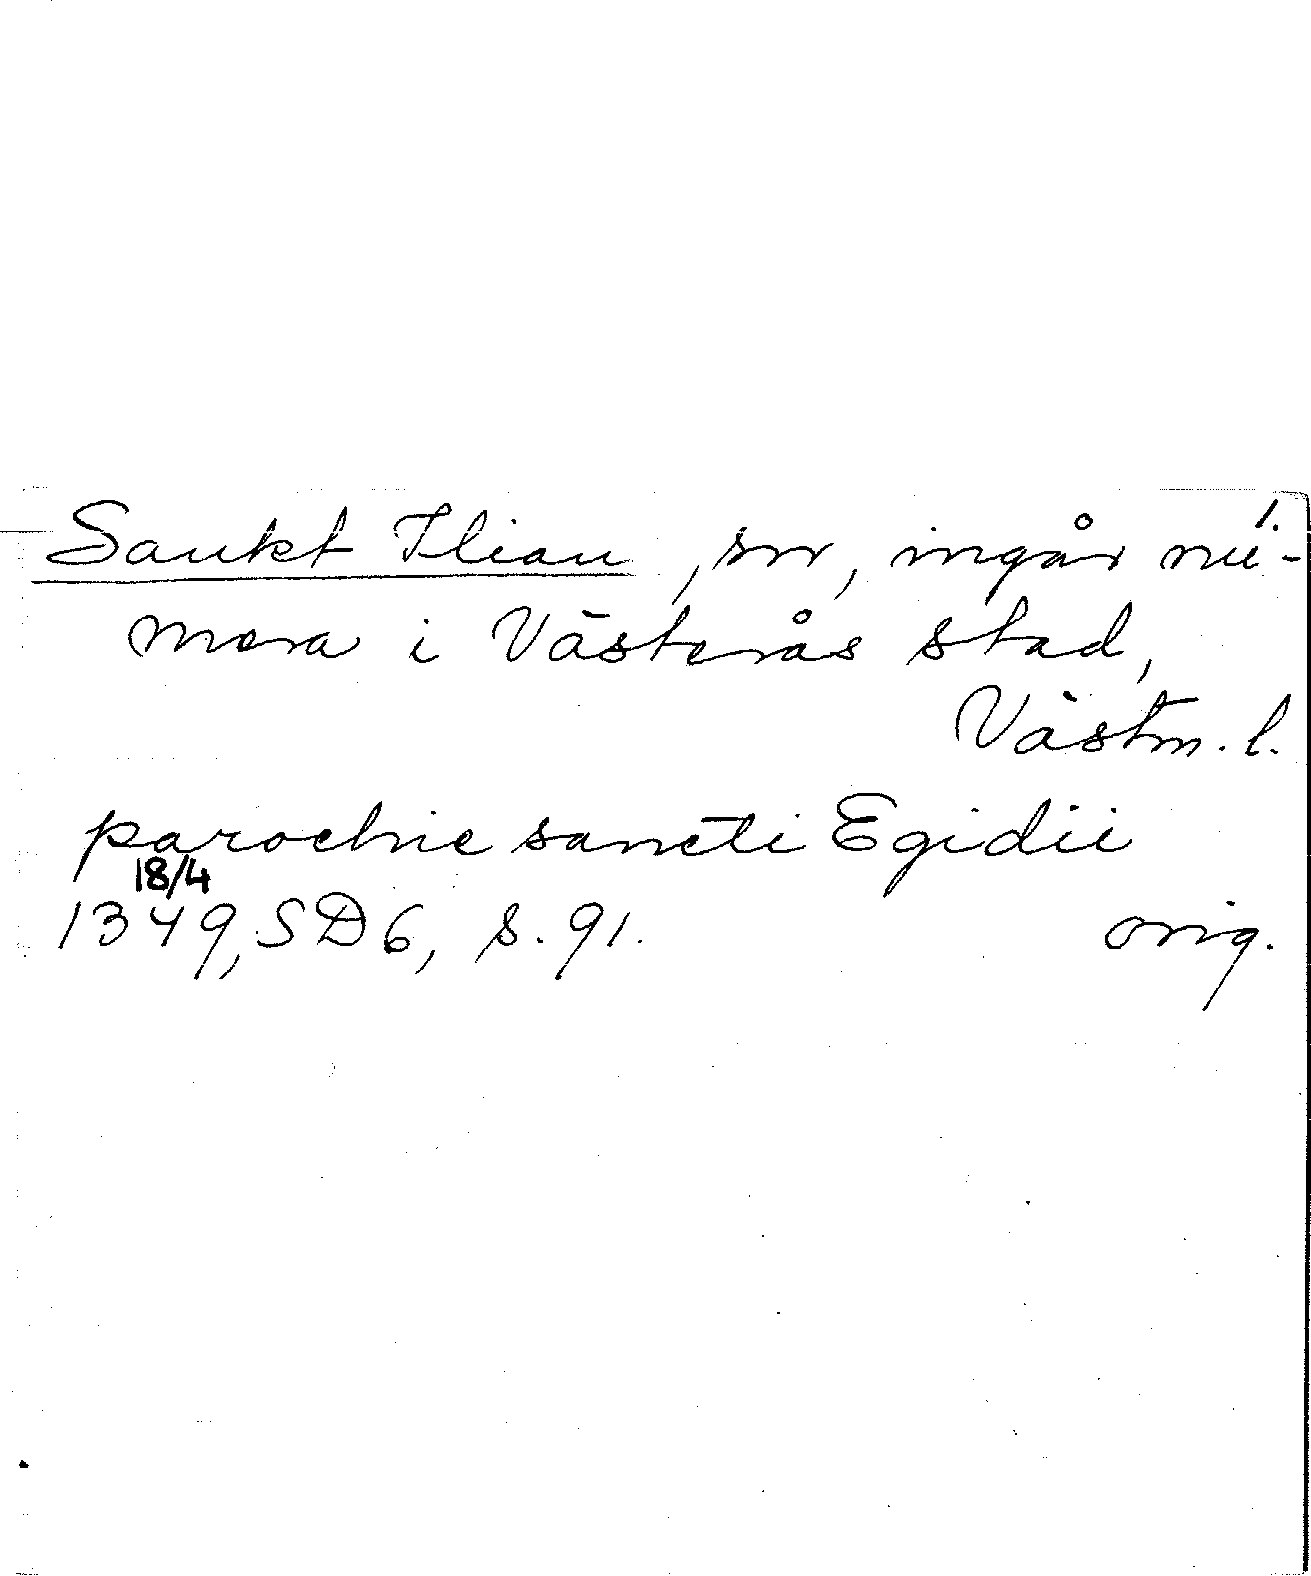 1.
Sankt Ilian, sn, ingår nu-
mera i Västerås stad,
Västm. l.
parochie sancti Egidii
18/4
1349, SD 6, s. 91. orig.